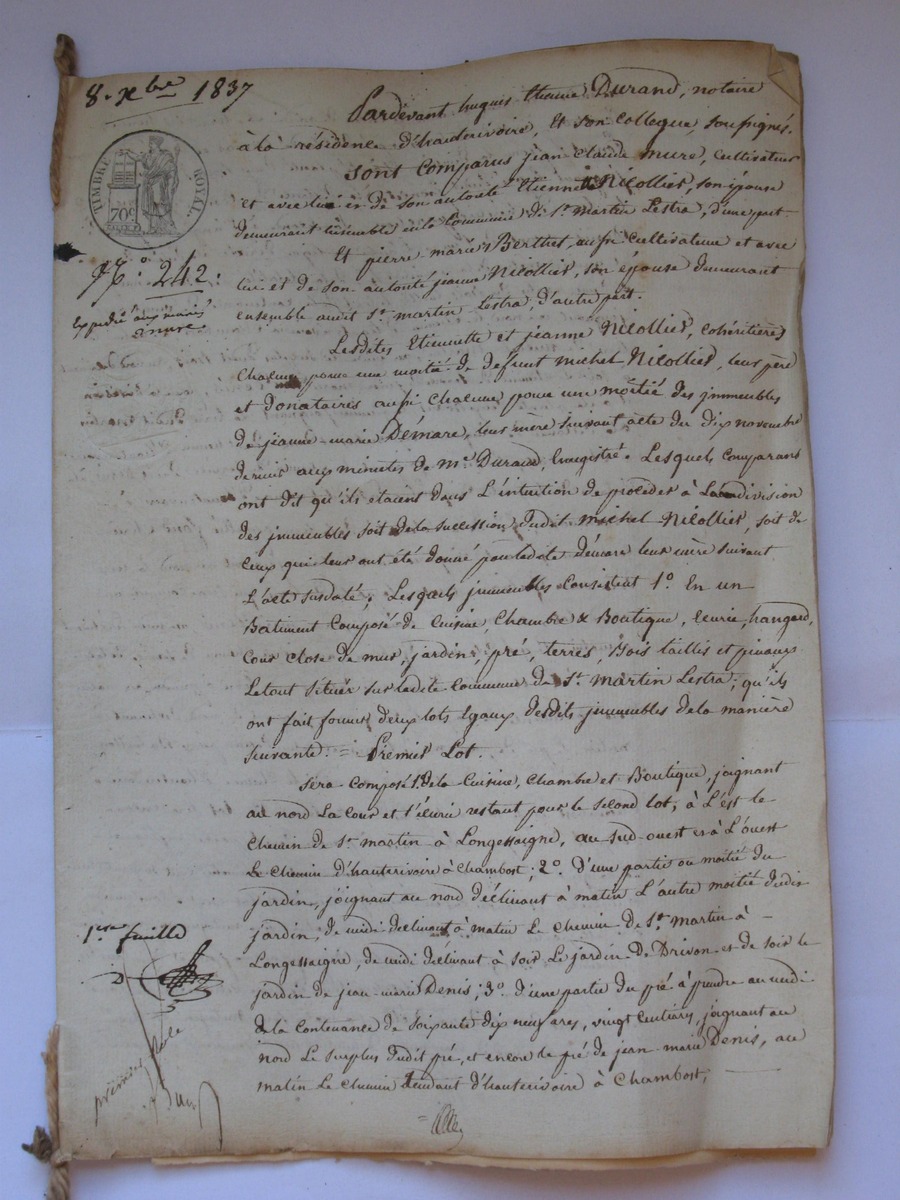 8. Xbre 1837
TIMBRE ROYAL.
70c
No. 242.
Expédié aux mariés
Pardevant hugues Etienne Durand, notaire
à la résidence d'hauterivoire, Et son Collegue, soussignés.
sont Comparus jean Claude mure, Cultivateur
et avec lui et de son autorité Etiennette Nicollier, son épouse
demeurant ensemble en la Commune de St martin Lestra, d'une part
Et pierre marie Berthet, aussi Cultivateur et avec
lui et de son autorité jeanne Nicollier, son épouse demeurant
ensemble audit St martin Lestra, d'autre part.
Lesdites Etiennette et jeanne Nicollier, Cohéritières
Chacune pour une moitié de defunt michel Nicollier, leur père
et Donataires aussi Chacune pour une moitié des jmmeubles
de jeanne-marie Démare, leur mère suivant acte du dix novembre
dernier aux minutes de Me Durand, Enregistré. Lesquels Comparans
ont dit qu'ils étaient dans L'intention de procéder à La division
des jmmeubles soit de la succession dudit michel Nicollier, soit de
Ceux qui leur ont été donné par ladite démare leur mère suivant
L'acte susdaté; Lesquels jmmeubles Consistent 1o. En un
Batiment Composé de Cuisine, Chambre & Boutique, Ecurie, hangard,
Cour close de mur, jardin, pré, terres, Bois taillis et pinaux
Le tout Situés sur ladite Commune de St. martin Lestra; qu'ils
ont fait former deux lots Egaux desdits jmmeubles de la manière
suivante. = Premier Lot.
sera Composé 1o. de la Cuisine, Chambre et Boutique, joignant
au nord La Cour et l'écurie restant pour le second lot, à L'est le
Chemin de St martin à Longessaigne, au sud-ouest et à L'ouest
Le Chemin d'hauterivoire à Chambost; 2o. D'une partie ou moitié du
jardin, joignant au nord déclinant à matin L'autre moitié dudit
jardin, de midi déclinant à matin Le Chemin de St. martin à
Longessaigne, de midi déclinant à soir Le jardin de Drivon et de soir le
jardin de jean-marie Denis; 3o. d'une partie du pré à prendre au midi
de la Contenance de soixante dix neuf ares, vingt Centiares, joignant au
nord Le surplus dudit pré, et encore le pré de jean marie Denis, au
matin Le Chemin tendant d'hauterivoire à Chambost;
1ere feuille
D
premier Role